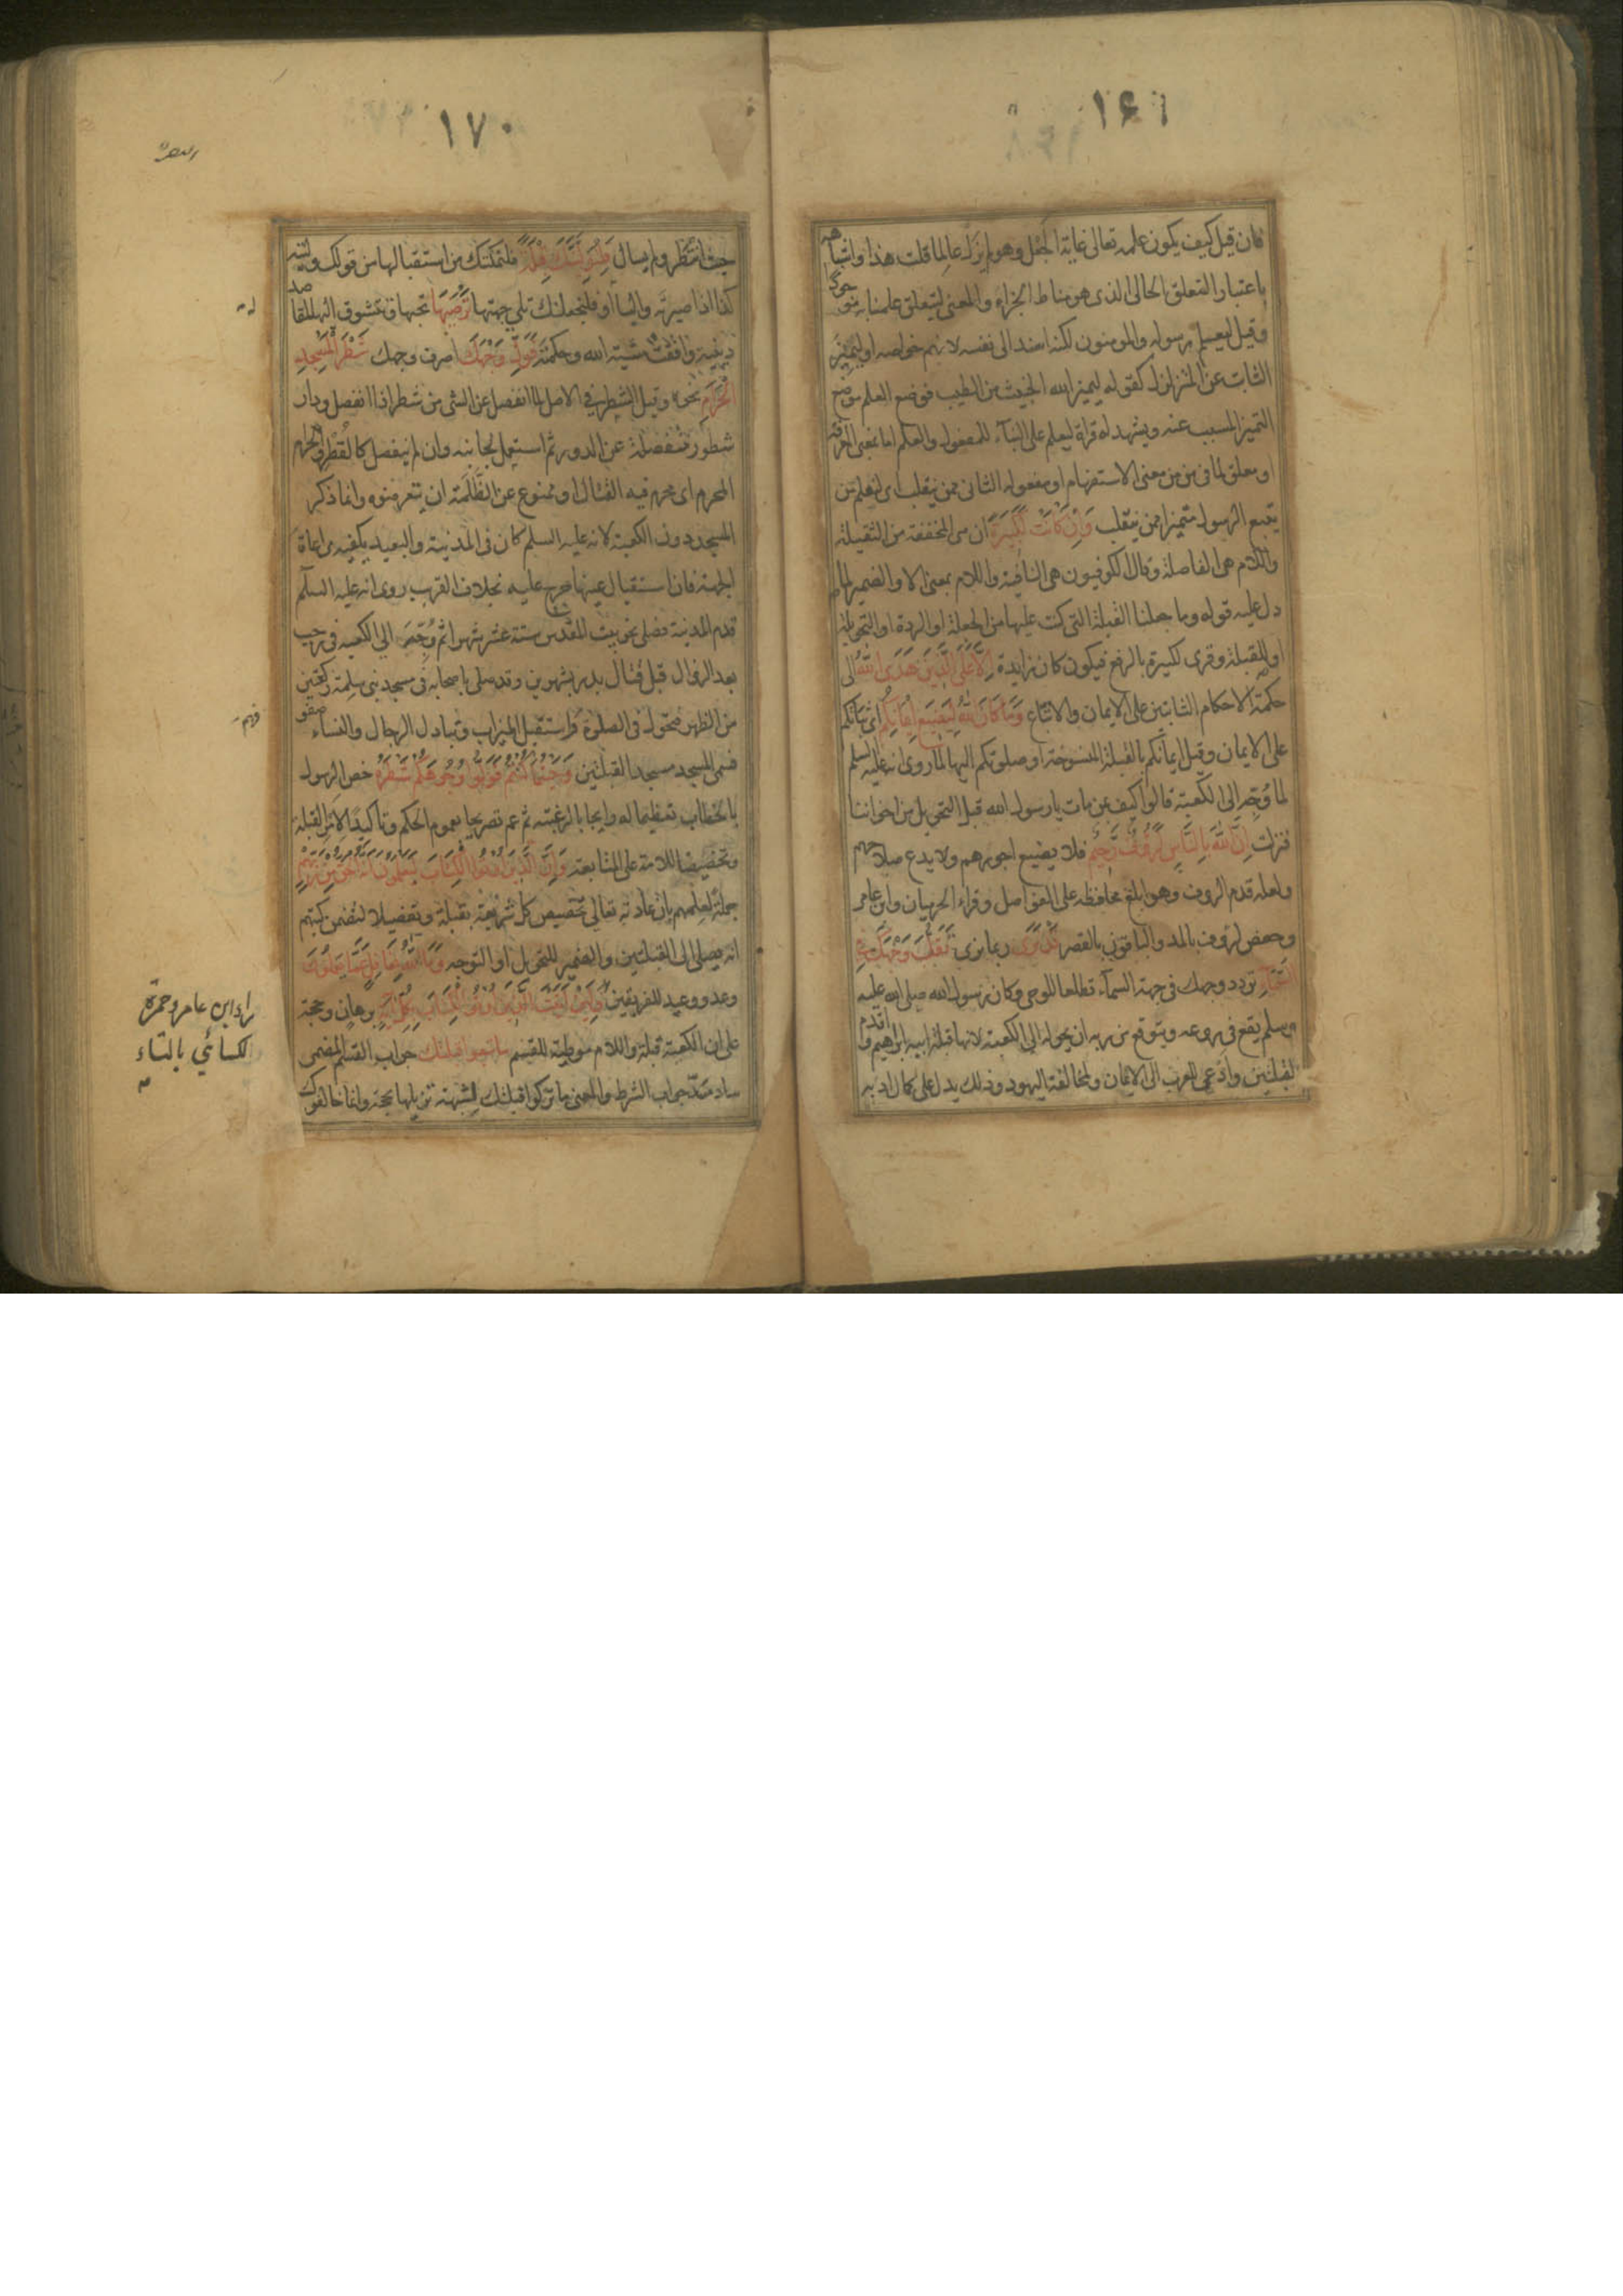 ۱۶۹
فان قيل كيف يكون علمه تعالى غاية الجعل وهو لم يزل عالما قلت هذا واشباهه
باعتبار التعلق الحالى الذى هو مناط الجزاء والمعنى ليتعلق علمنا به موجودا
وقيل ليعلم رسوله والمومنون لكنه اسند الى نفسه لانهم خواصه او ليتميز
الثابت عن المتزلزل كقوله ليميز الله الخبيث من الطيب فوضع العلم موضع
التميز المسبب عنه ويشهد له قراة ليعلم على البناء للمفعول والعلم اما بمعنى المعرفة
او معلق لما فى من من معنى الاستفهام او مفعوله الثانى ممن ينقلب اى لنعلم من
يتبع الرسول متميزا ممن ينقلب وَاِنْ كَانَتْ لَكَبِيرَةً ان هى المخففة من الثقيلة
واللام هى الفاصلة وقال الكوفيون هى النافية واللام بمعنى الا والضمير لما
دل عليه قوله وما جعلنا القبلة التى كنت عليها من الجعلة او الردة او التحويلة
او للقبلة وقرى لكبيرة بالرفع فيكون كان زايدة اِلَّا عَلَى الَّذِينَ هَدَى اللهُ الى
حكمة الاحكام الثابتين على الايمان والاتباع وَمَا كَانَ اللهُ لِيُضِيعَ اِيمَانَكُمْ اى ثباتكم
على الايمان وقيل ايمانكم بالقبلة المنسوخة او صلوتكم اليها لما روى انه عليه السلم
لما وُجِّه الى الكعبة قالوا كيف بمن مات يا رسول الله قبل التحويل من اخواننا
فنزلت اِنَّ اللهَ بِالنَّاسِ لَرَؤُفٌ رَحِيمٌ فلا يضيع اجورهم ولا يدع صلاحهم
ولعله قدم الروف وهو ابلغ محافظة على الفواصل وقراء الحرميان وابن عامر
وحفص لرؤف بالمد والباقون بالقصر قَدْ نَرَى ربما نرى تَقَلُّبَ وَجْهِكَ فِى
السَّمَاءِ تردد وجهك فى جهة السمآء تطلعا للوحى وكان رسول الله صلى الله عليه
وسلم يقع فى روعه ويتوقع من ربه ان يحوله الى الكعبة لانها قبلة ابيه ابراهيم واقدم
القبلتين وادعى للعرب الى الايمان ولمخالفة اليهود وذلك يدل على كمال ادبه
۱۷۰
حيث انتظر ولم يسال فَلَنُوَلِّيَنَّكَ قِبْلَةً فلنمكنك من استقبالها من قولك وليته
كذا اذا صيرته واليا او فلنجعلنك تلى جهتها تَرْضَيهَا تحبها وتتشوق اليه لمقاصد
دينية وافقت مشية الله وحكمته فَوَلِّ وَجْهَكَ اصرف وجهك شَطْرَ الْمَسْجِدِ
الْحَرَامِ نحوه وقيل الشطر فى الاصل لما انفصل عن الشى من شطر اذا انفصل ودار
شطور منفصلة عن الدور ثم استعمل لجانبه وان لم ينفصل كالقطر والحرام
المحرم اى محرم فيه القتال او ممنوع عن الظلمة ان يتعرضوه وانما ذكر
المسجد دون الكعبة لانه عليه السلم كان فى المدينة والبعيد يكفيه مراعاة
الجهة فان استقبال عينها حرج عليه بخلاف القرب روى انه عليه السلم
قدم المدينة فصلى نحو بيت المقدس ستة عشر شهرا ثم وُجِّه الى الكعبة فى رجب
بعد الزوال قبل قتال بدر بشهرين وقد صلى باصحابه فى مسجد بنى سلمة ركعتين
من الظهر فتحول فى الصلوة واستقبل الميزاب وتبادل الرجال والنساء صفو
فسمى المسجد مسجد القبلتين وَحَيْثُمَا كُنْتُمْ فَوَلُّوا وُجُوهَكُمْ شَطْرَهُ خص الرسول
بالخطاب تعظيما له وايجابا لرغبته ثم عم تصريحا بعموم الحكم وتاكيدا لامر القبلة
وتحضيضا للامة على المتابعة وَاِنَّ الَّذِينَ اُوتُوا الْكِتَابَ لَيَعْلَمُونَ اَنَّهُ الْحَقُّ مِنْ رَبِّهِمْ
جملة لعلمهم بان عادته تعالى تخصيص كل شريعة بقبلة وتفصيلا لتضمن كتبهم
انه يصلى الى القبلتين والضمير للتحويل او التوجه وَمَا اللهُ بِغَافِلٍ عَمَّا يَعْمَلُونَ
وعد ووعيد للفريقين وَلَئِنْ اَتَيْتَ الَّذِينَ اُوتُوا الْكِتَابَ بِكُلِّ اٰيَةٍ برهان وحجة
على ان الكعبة قبلة واللام موطية للقسم ما تبعوا قبلتك جواب القسم المضمر
ساد مسد جواب الشرط والمعنى ما تركوا قبلتك لشبهة تزيلها بحجة وانما خالفوك
ابن عامر وحمزة
الكسائي بالتاء